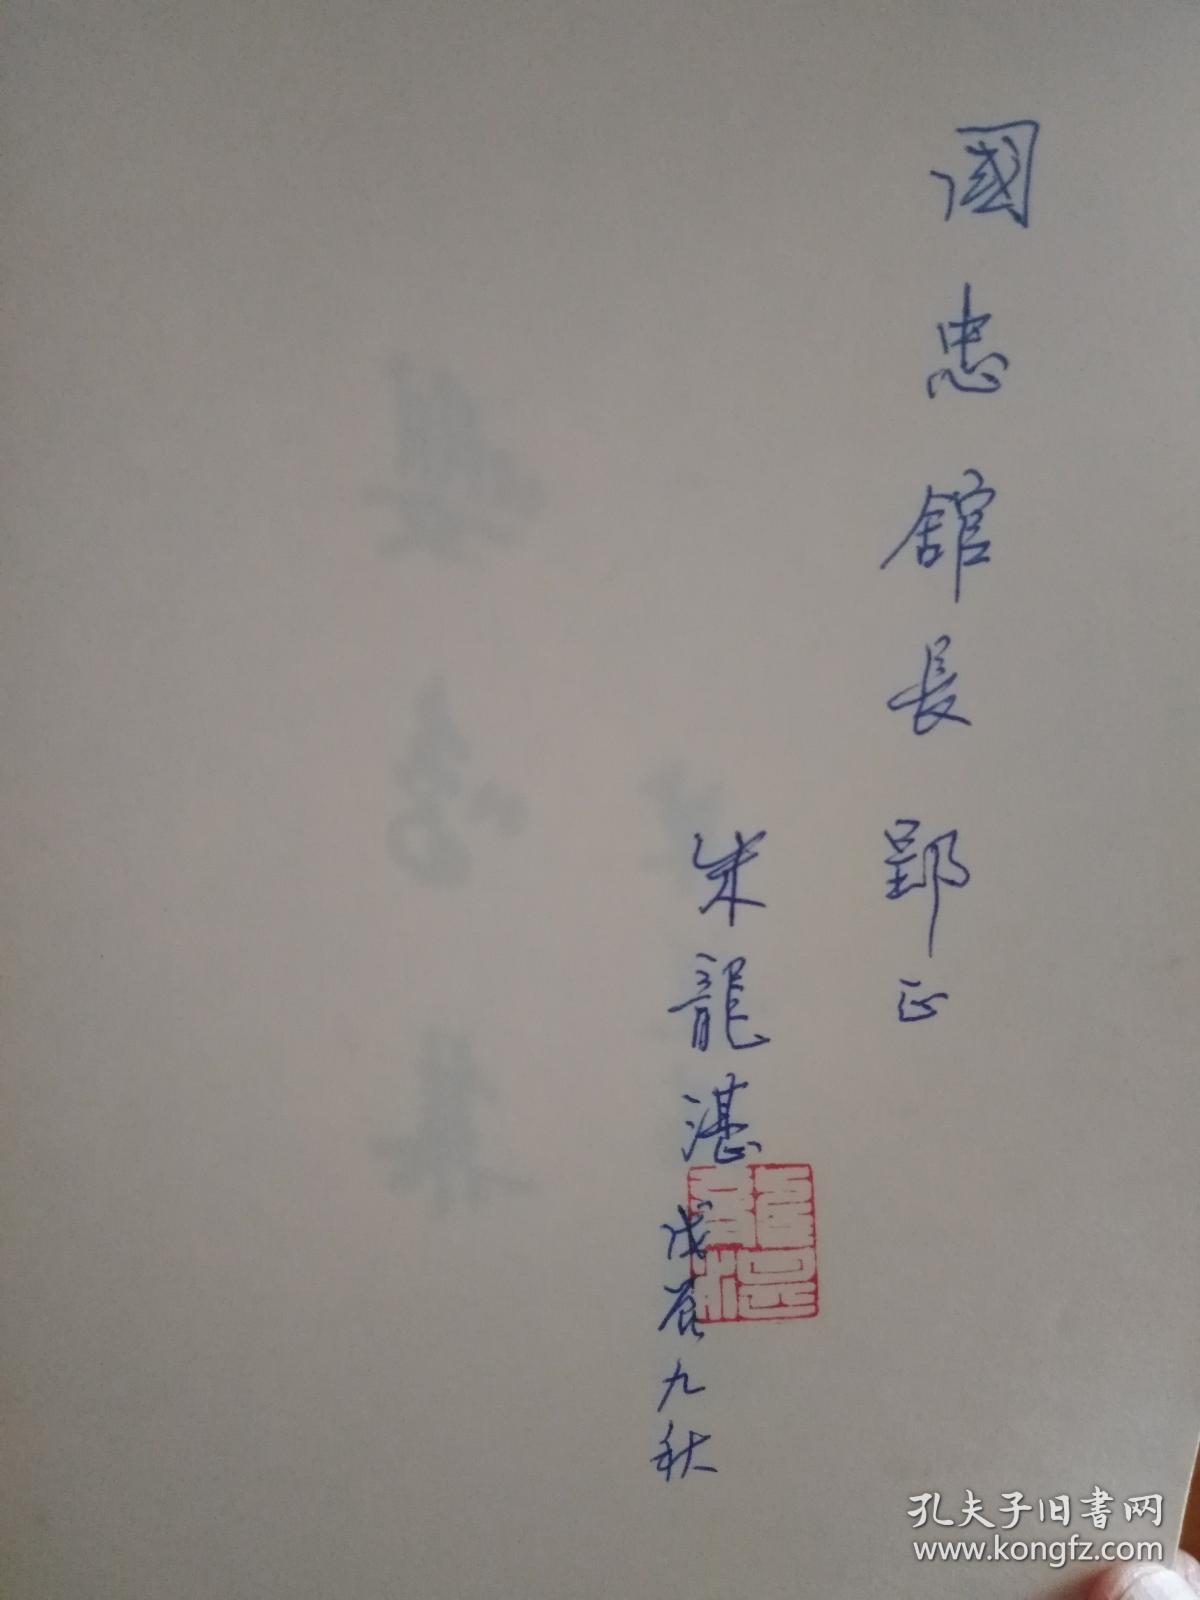 國忠舘長郢正
朱龍湛
戊辰九秋
孔夫子旧书网
www.kongfz.com